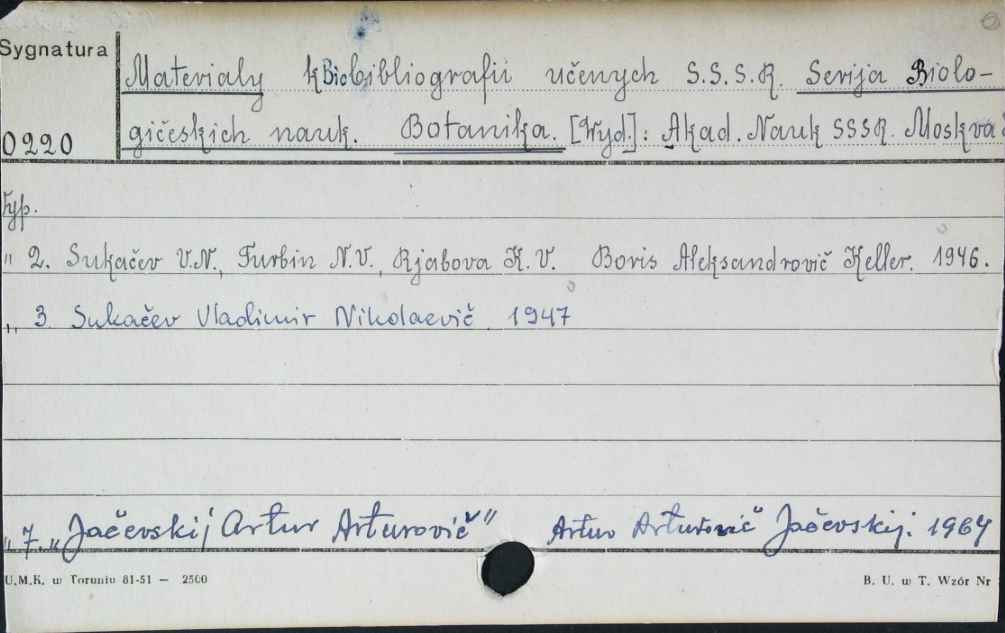 Sygnatura
Materialy k Biobibliografii učenych S.S.S.R. Serija Biolo-
gičeskich nauk. Botanika. [Wyd.]: Akad. Nauk SSSR. Moskva
0220
Typ.
" 2. Sukačev V.N., Turbin N.V., Rjabova K.V. Boris Aleksandrovič Keller. 1946.
" 3. Sukačev Vladimir Nikolaevič. 1947
" 7. "Jačevskij Artur Arturovič" Artur Arturovič Jačevskij. 1964
U.M.K. w Toruniu 81-51 — 2500
B. U. w T. Wzór Nr